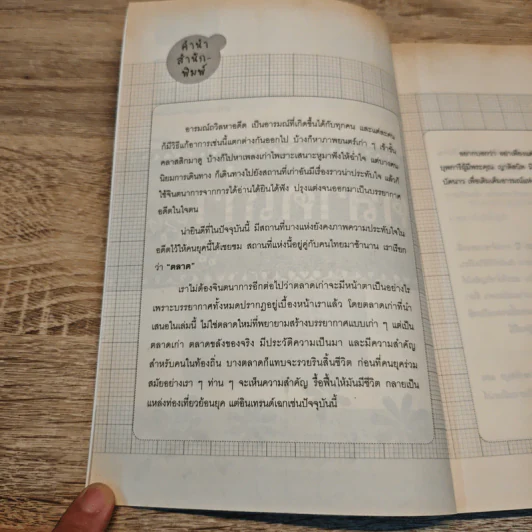 คำนำ
สำนัก-
พิมพ์
อารมณ์ถวิลหาอดีต เป็นอารมณ์ที่เกิดขึ้นได้กับทุกคน และแต่ละคน
ก็มีวิธีแก้อาการเช่นนี้แตกต่างกันออกไป บ้างก็หาภาพยนตร์เก่า ๆ เข้าขั้น
คลาสสิกมาดู บ้างก็ไปหาเพลงเก่าไพเราะเสนาะหูมาฟังให้ฉ่ำใจ แต่บางคน
นิยมการเดินทาง ก็เดินทางไปยังสถานที่เก่าอันมีเรื่องราวน่าประทับใจ แล้วก็
ใช้จินตนาการจากการได้อ่านได้ยินได้ฟัง ปรุงแต่งจนออกมาเป็นบรรยากาศ
อดีตในใจตน
น่ายินดีที่ในปัจจุบันนี้ มีสถานที่บางแห่งยังคงภาพความประทับใจใน
อดีตไว้ให้คนยุคนี้ได้เชยชม สถานที่แห่งนี้อยู่คู่กับคนไทยมาช้านาน เราเรียก
ว่า "ตลาด"
เราไม่ต้องจินตนาการอีกต่อไปว่าตลาดเก่าจะมีหน้าตาเป็นอย่างไร
เพราะบรรยากาศทั้งหมดปรากฏอยู่เบื้องหน้าเราแล้ว โดยตลาดเก่าที่นำ
เสนอในเล่มนี้ ไม่ใช่ตลาดใหม่ที่พยายามสร้างบรรยากาศแบบเก่า ๆ แต่เป็น
ตลาดเก่า ตลาดขลังของจริง มีประวัติความเป็นมา และมีความสำคัญ
สำหรับคนในท้องถิ่น บางตลาดก็แทบจะรวยรินสิ้นชีวิต ก่อนที่คนยุคร่วม
สมัยอย่างเรา ๆ ท่าน ๆ จะเห็นความสำคัญ รื้อฟื้นให้มันมีชีวิต กลายเป็น
แหล่งท่องเที่ยวย้อนยุค แต่อินเทรนด์เฉกเช่นปัจจุบันนี้